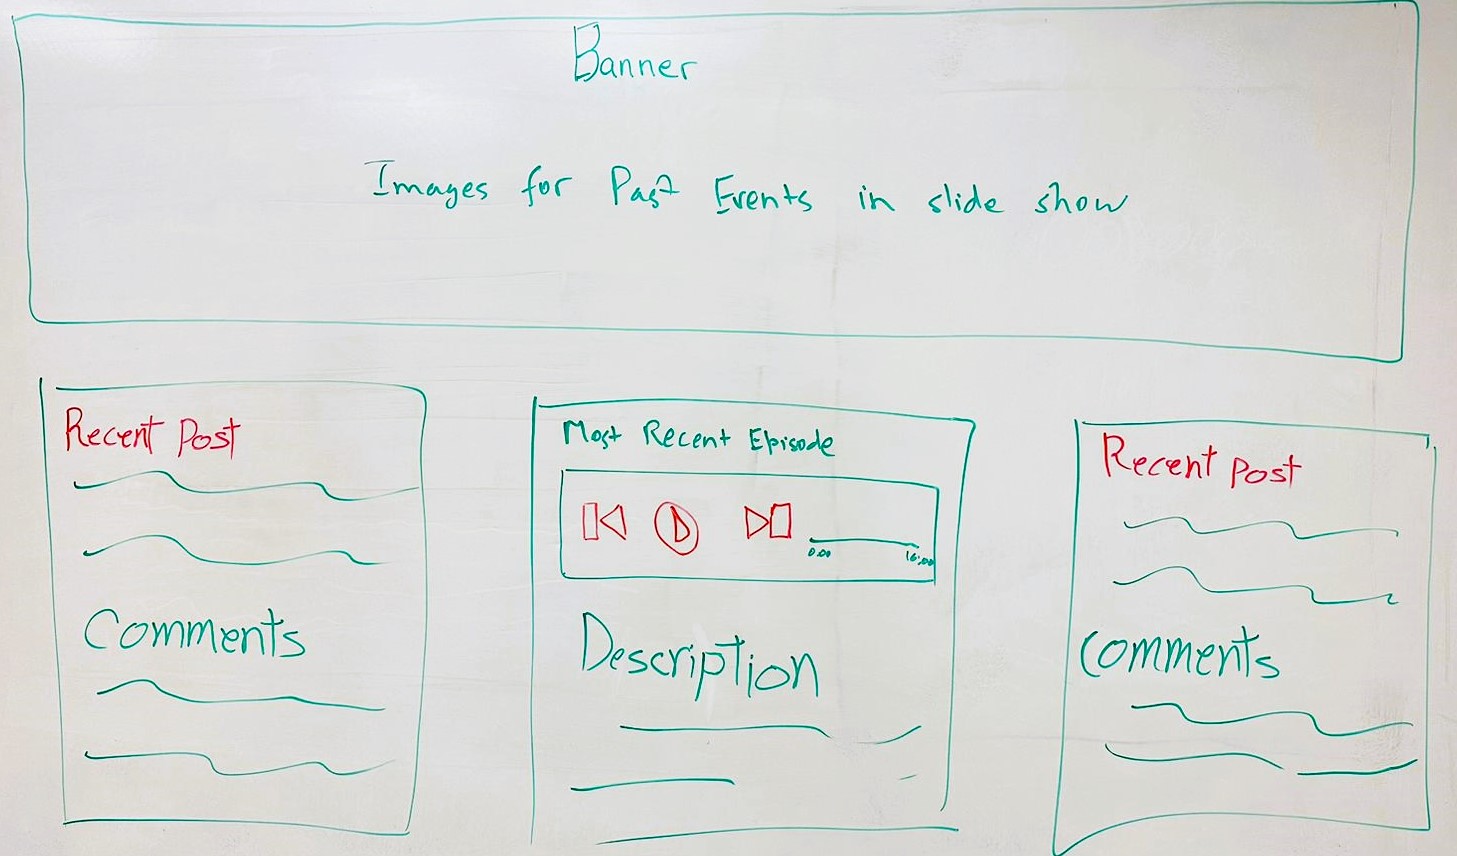 Banner
Images for Past Events in slide show
Recent Post
Comments
Most Recent Episode
0:00 16:00
Description
Recent Post
Comments